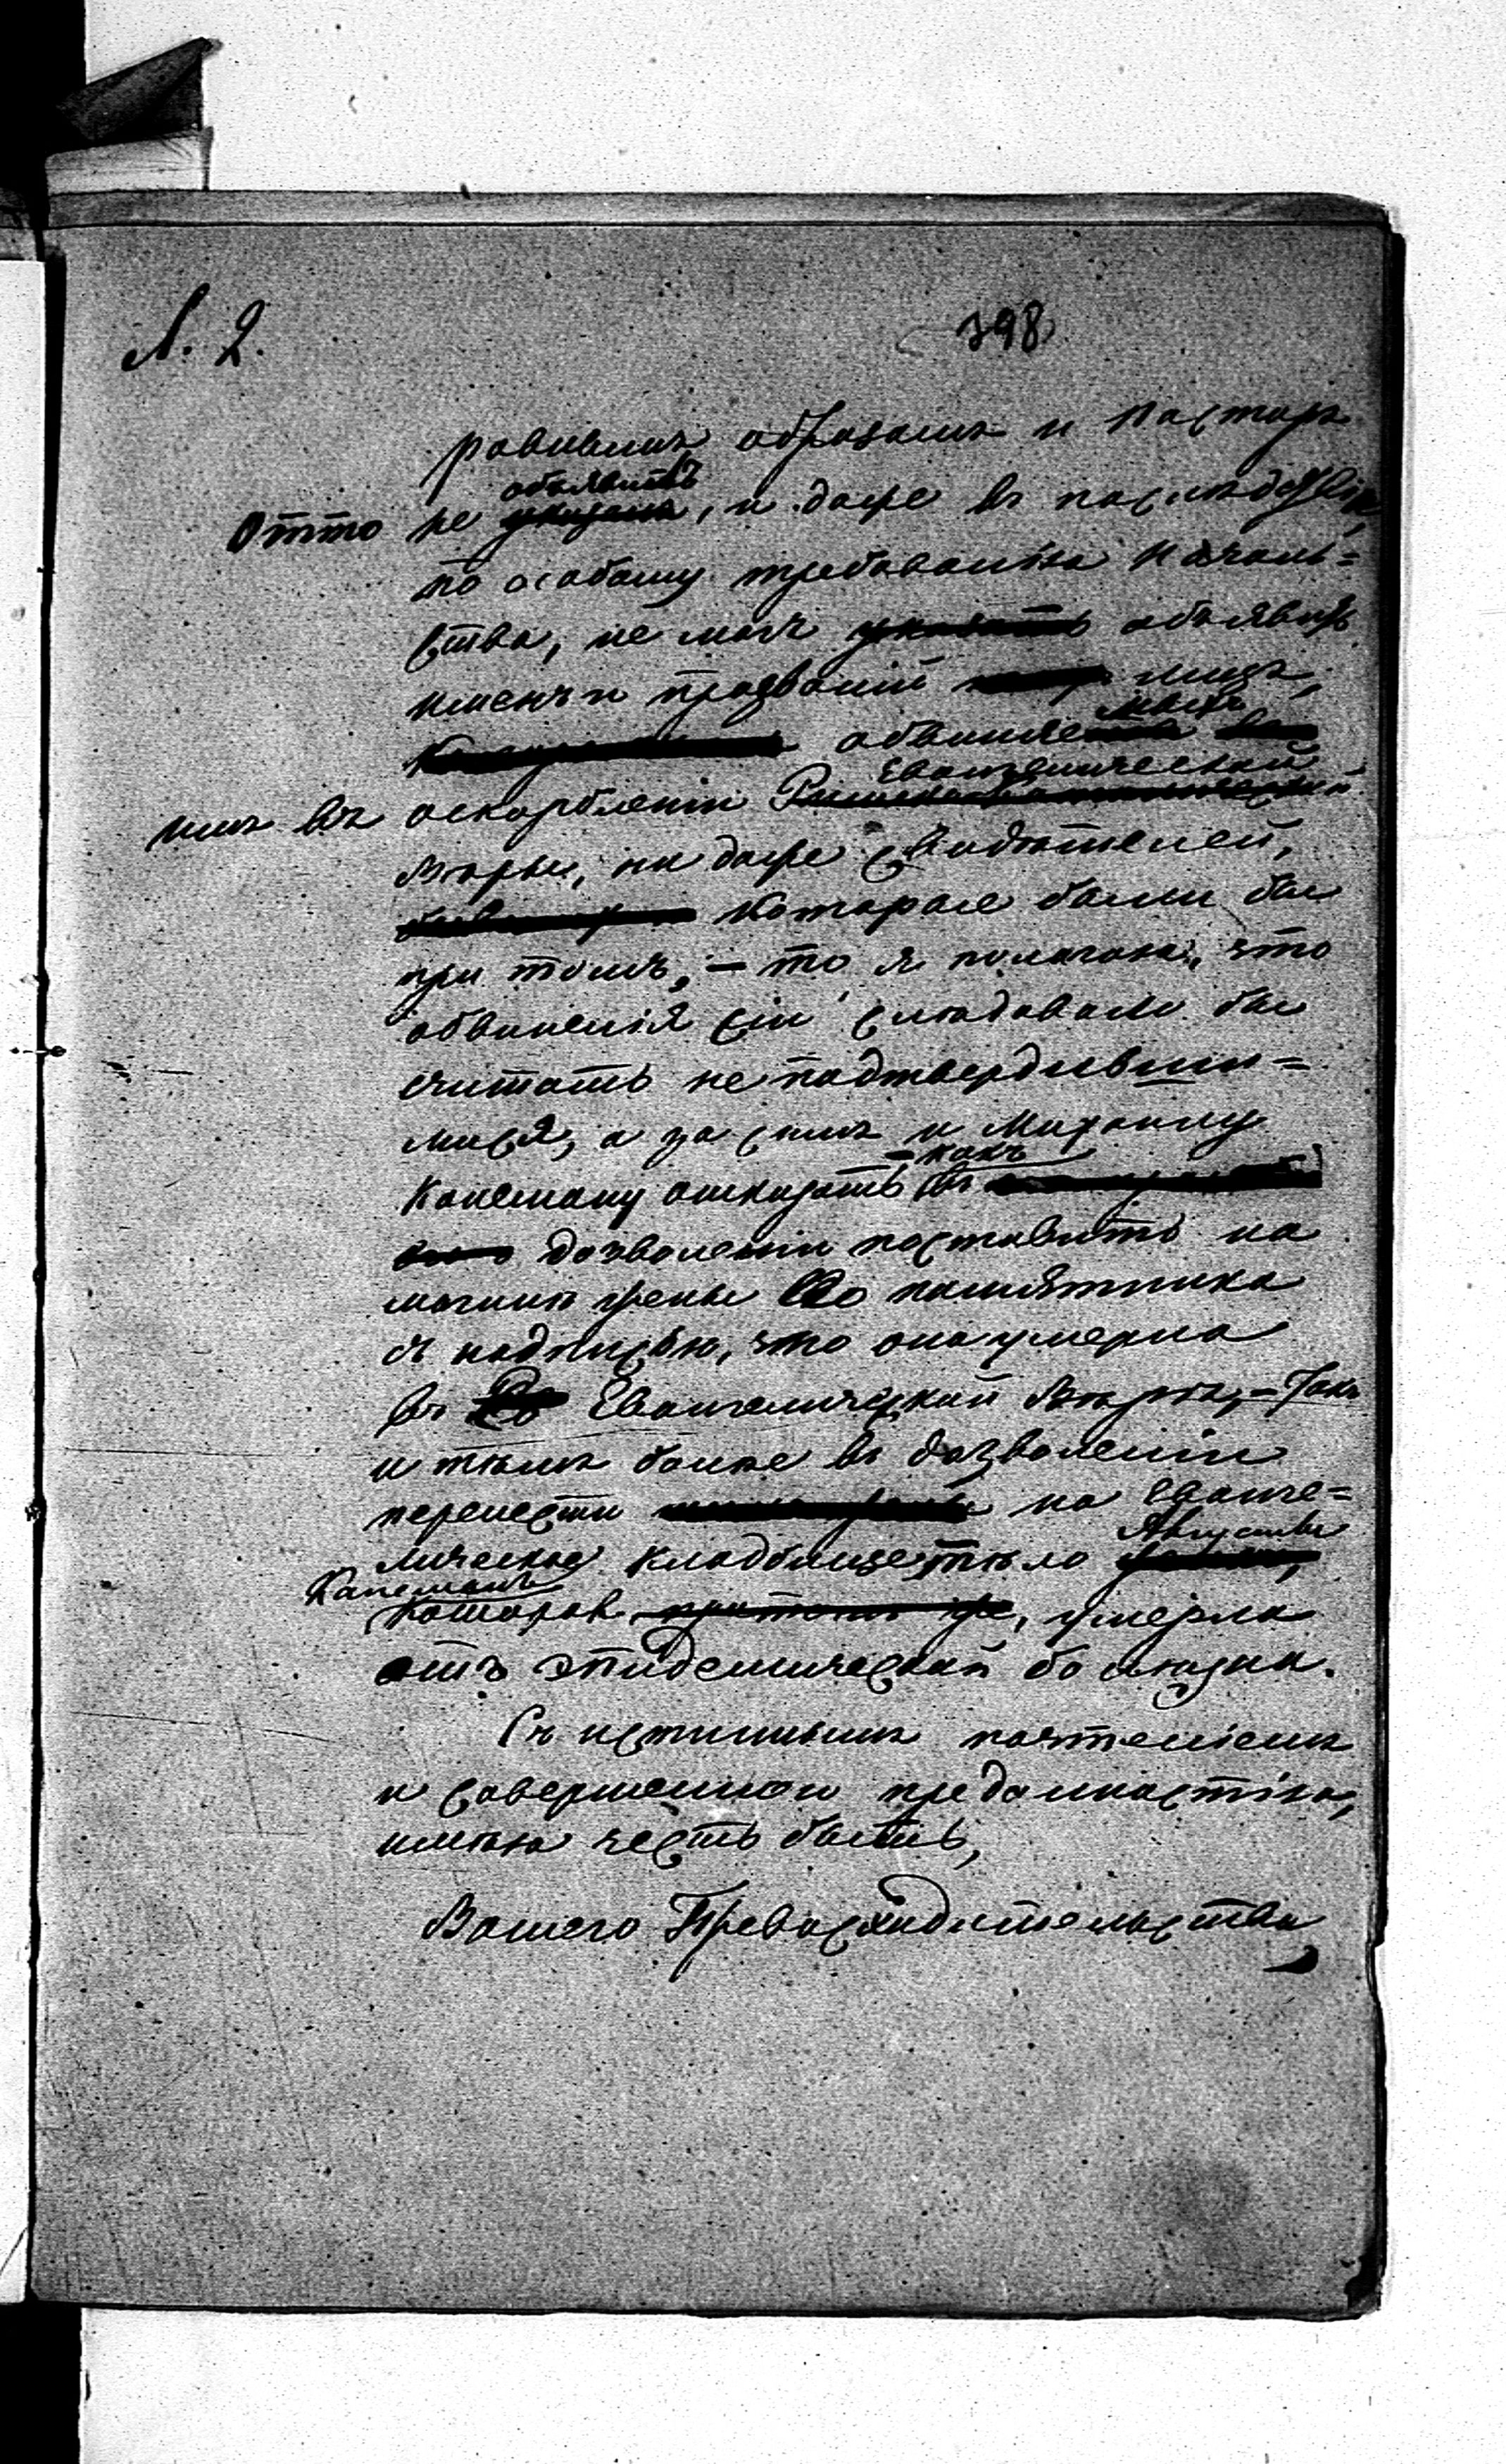 Л. 2.
398
равнымъ образомъ и Пасторъ
объявилъ
Отто не указалъ, и даже въ послѣдствіи,
по особому требованію Началь=
ства, не могъ указать объявить
именъ и прозваній лицъ,
мыхъ
обвиняе
Евангелической
имъ въ оскорбленіи Римско-Католической
Вѣры, ни даже свидѣтелей,
которые были бы
при томъ, — то я полагаю, что
обвиненія сіи слѣдовало бы
считать не подтвердивши=
мися, а за симъ и Михаилу
— какъ
Капеману отказать въ
дозволеніи поставить на
могилѣ жены его памятника
съ надписью, что она умерла
въ Евангелической Вѣрѣ, — такъ
и тѣмъ болѣе въ дозволеніи
перенести на Еванге=
Августы
лическое кладбище тѣло
Капеманъ
которая притомъ же, умерла
отъ эпидемической болѣзни.
Съ истиннымъ почтеніемъ
и совершенною преданностію,
имѣю честь быть,
Вашего Превосходительства,